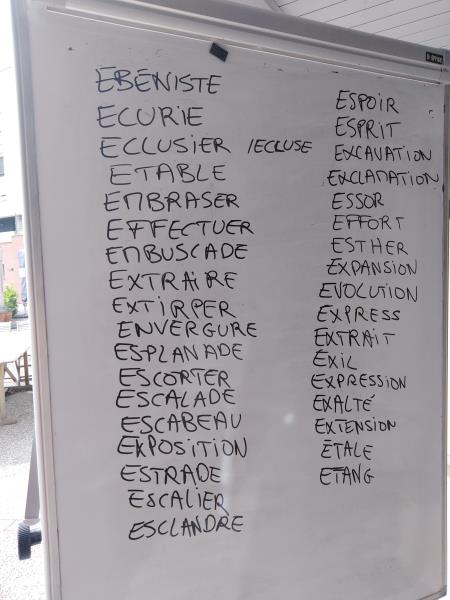 ÉBÉNISTE
ECURIE
ECLUSIER /ECLUSE
ETABLE
EMBRASER
EFFECTUER
EMBUSCADE
EXTRAIRE
EXTIRPER
ENVERGURE
ESPLANADE
ESCORTER
ESCALADE
ESCABEAU
EXPOSITION
ESTRADE
ESCALIER
ESCLANDRE
ESPOIR
ESPRIT
EXCAVATION
EXCLAMATION
ESSOR
EFFORT
ESTHER
EXPANSION
EVOLUTION
EXPRESS
EXTRAIT
EXIL
EXPRESSION
EXALTÉ
EXTENSION
ÉTALE
ETANG